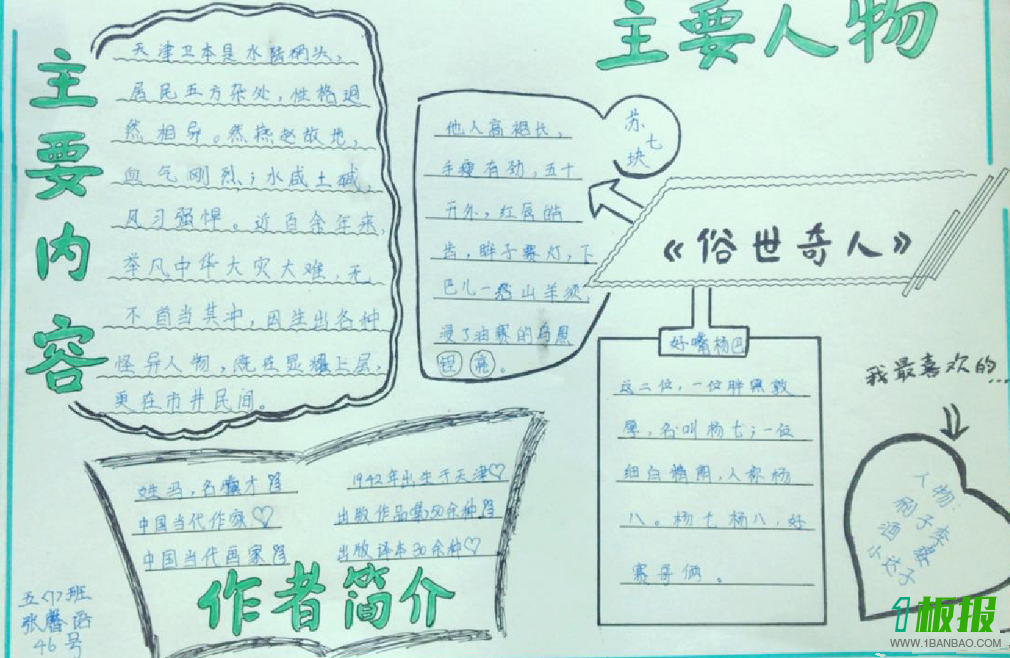 主要内容
天津卫本是水陆码头，
居民五方杂处，性格迥
然相异。然燕赵故地，
血气刚烈；水咸土碱，
风习强悍。近百余年来，
举凡中华大灾大难，无
不首当其冲，因生出各种
怪异人物，既在显耀上层，
更在市井民间。
主要人物
苏七块
他人高袍长，
手瘦有劲，五十
开外，红唇皓
齿，眸子赛灯，下
巴儿一绺山羊须，
浸了油赛的乌黑
锃亮。
《俗世奇人》
好嘴杨巴
这二位，一位胖黑敦
厚，名叫杨七；一位
细白精明，人称杨
八。杨七杨八，好
赛哥俩。
我最喜欢的...
人物：
刷子李
酒婆
小达子
作者简介
姓冯，名骥才
中国当代作家♡
中国当代画家
1942年出生于天津♡
出版作品集50余种
出版译本30余种♡
五〈7〉班
张馨函
46号
1板报
WWW.1BANBAO.COM